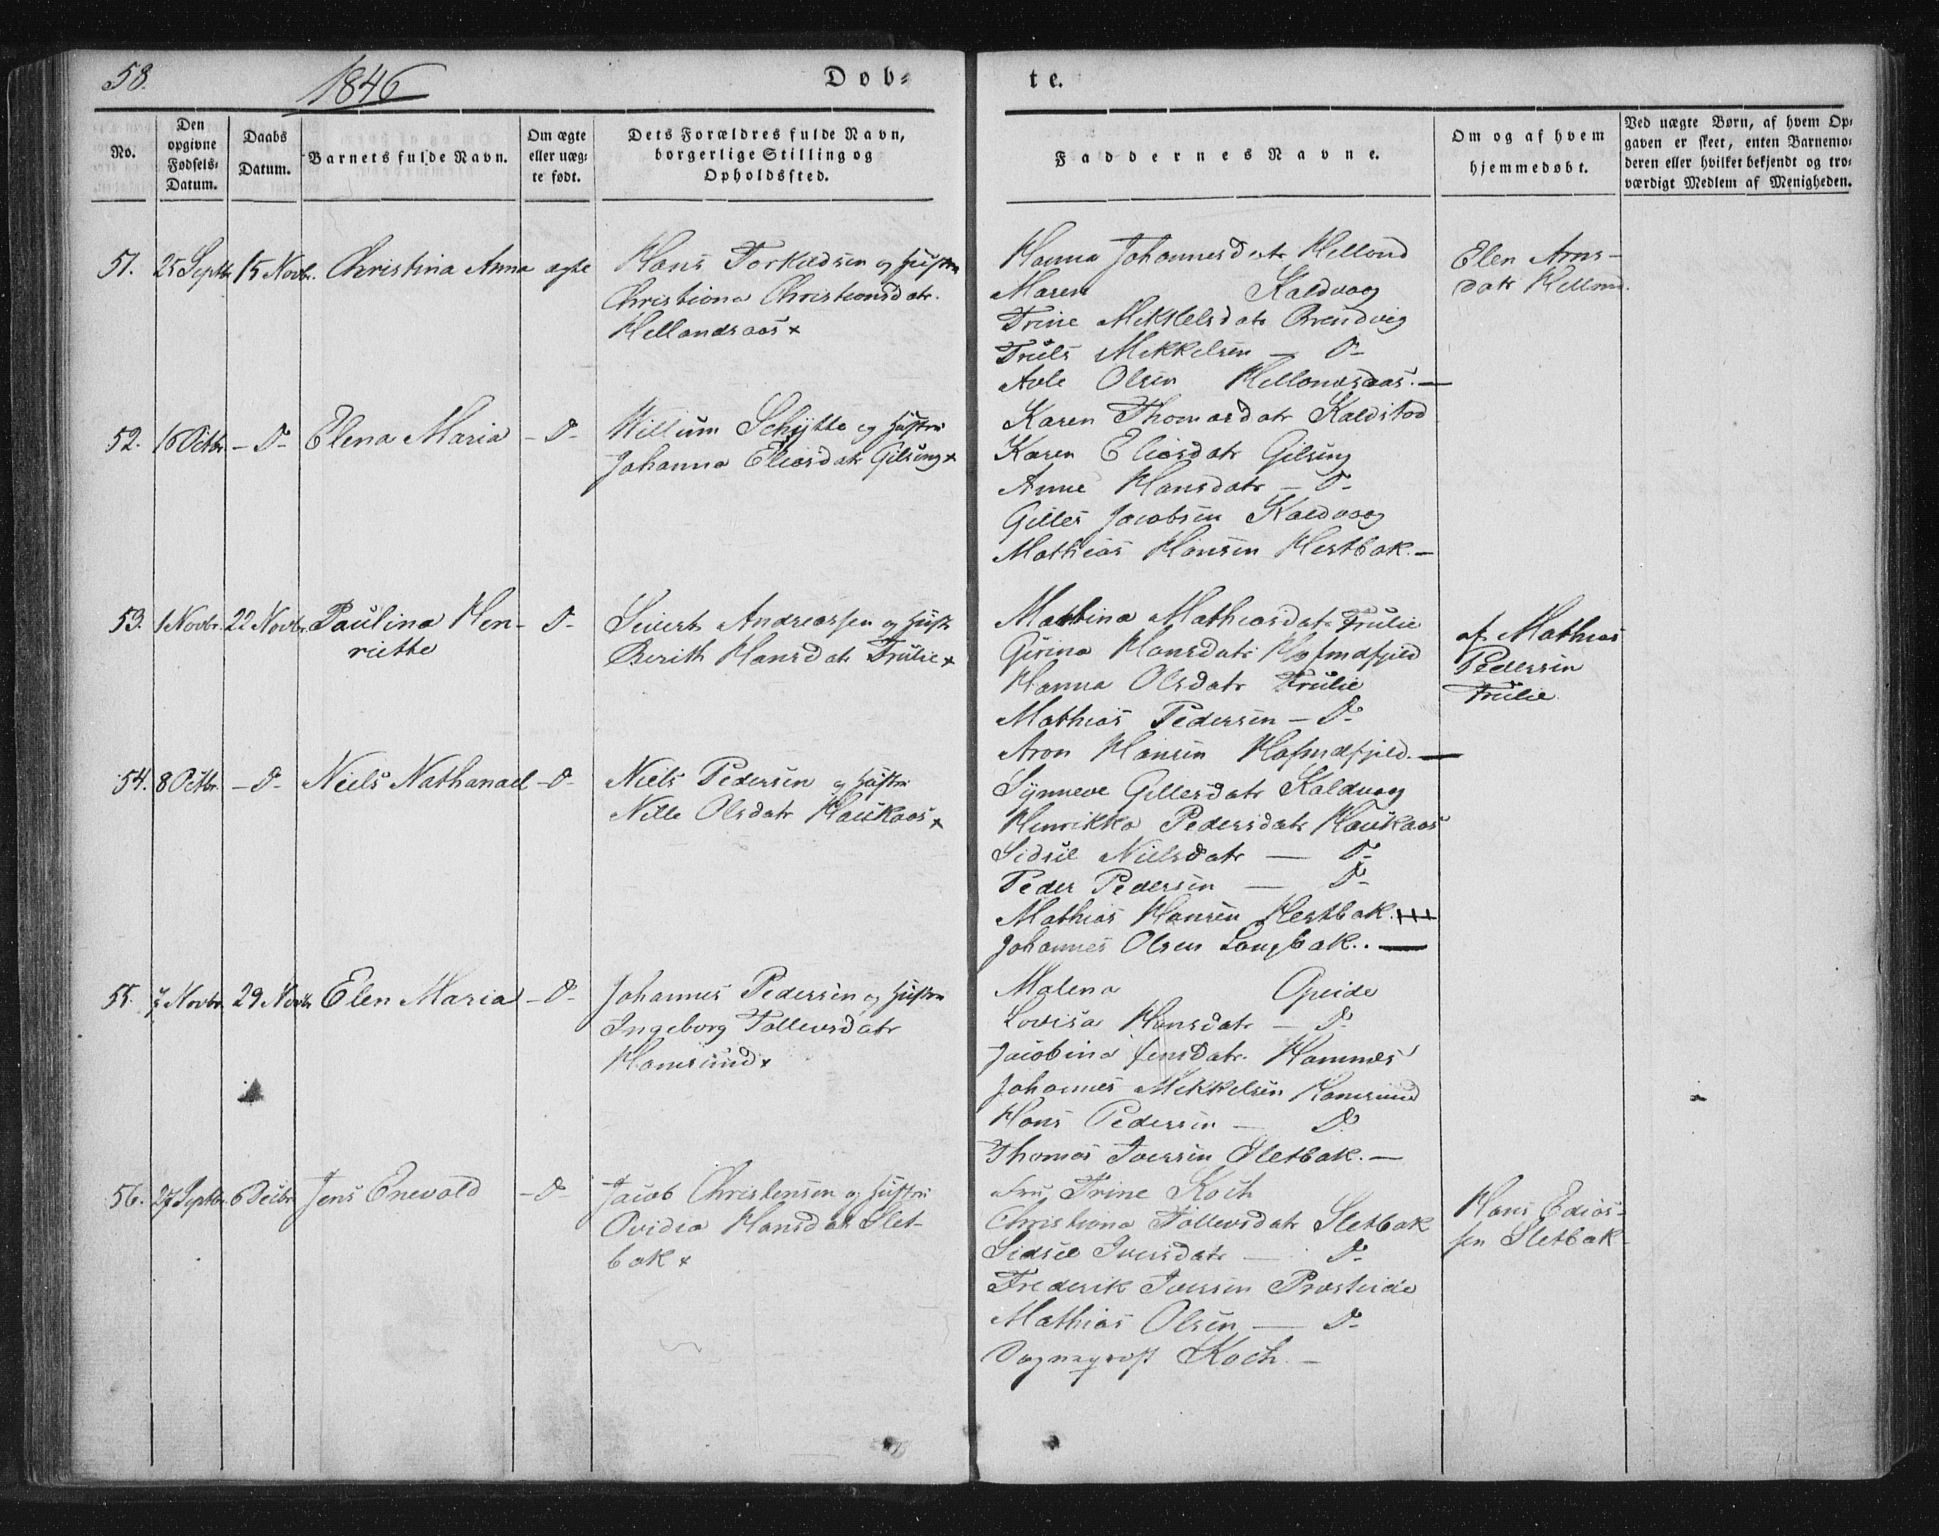 58.
1846
Dob-
te.
No.
Den opgivne Fødsels-Datum.
Daabs Datum.
Barnets fulde Navn.
Om ægte eller uæg-te født.
Dets Forældres fulde Navn, borgerlige Stilling og Opholdssted.
Faddernes Navne.
Om og af hvem hjemmedøbt.
Ved uægte Børn, af hvem Op-gaven er skeet, enten Barnemo-deren eller hvilket bekjendt og tro-værdigt Medlem af Menigheden.
51. 25 Septbr. 15 Novbr. Christina Anna ægte
Hans Torkildsen og Hustru
Christiana Christiansdatr.
Hellandsaas x
Hanna Johannesdatr Helland
Maren Kaldvaag
Trine Mikkelsdatr Brendvig
Truls Mikkelsen - D-
Avle Olsen Hellandsaas. -
Elen Arns-
datr Helland.
52. 16 Octbr - D- Elena Maria - D-
Willum Schytte og Hustru
Johanna Eliasdatr Gilsung x
Karen Thomasdatr Kaldstad
Karen Eliasdatr Gilsung
Anne Hansdatr - D-
Gilles Jacobsen Kaldvaag
Mathias Hansen Hestbak. -
53. 1 Novbr. 22 Novbr. Paulina Hen-
riette
D-
Sivert Andreassen og Hustr
Berith Hansdatr Trulie x
Martina Mathiasdatr Trulie
Girina Hansdatr Hafmdfjeld
Hanna Olsdatr Trulie
Mathias Pedersen - D-
Aron Hansen Hafmdfjeld. -
af Mathias
Pedersen
Trulie
54. 8 Octbr. - D- Niels Nathanael - D-
Niels Pedersen og Hustru
Nille Olsdatr Haukaas x
Synneve Gillesdatr Kaldvaag
Henrikka Pedersdatr Haukaas
Sidsel Nielsdatr - D-
Peder Pedersen - D-
Mathias Hansen Hestbak.
Johannes Olsen Langbak. -
55. 7 Novbr. 29 Novbr Elen Maria - D-
Johannes Pedersen og Hustru
Ingeborg Tollevsdatr
Hamsund x
Malena Opeide
Lovisa Hansdatr - D-
Jacobina Jensdatr. Hammes
Johannes Mikkelsen Hamsund
Hans Pedersen - D
Thomas Iversen Sletbak. -
56. 27 Septbr. 6 Decbr Jens Enevold - D-
Jacob Christensen og Hustru
Ovidia Hansdatr Slet-
bak x
Fru Trine Koch
Christiana Tollevsdatr Sletbak
Sidsel Iversdatr - D-
Frederik Iversen Presteide
Mathias Olsen - D-
Sogneprest Koch. -
Hans Edias-
sen Sletbak